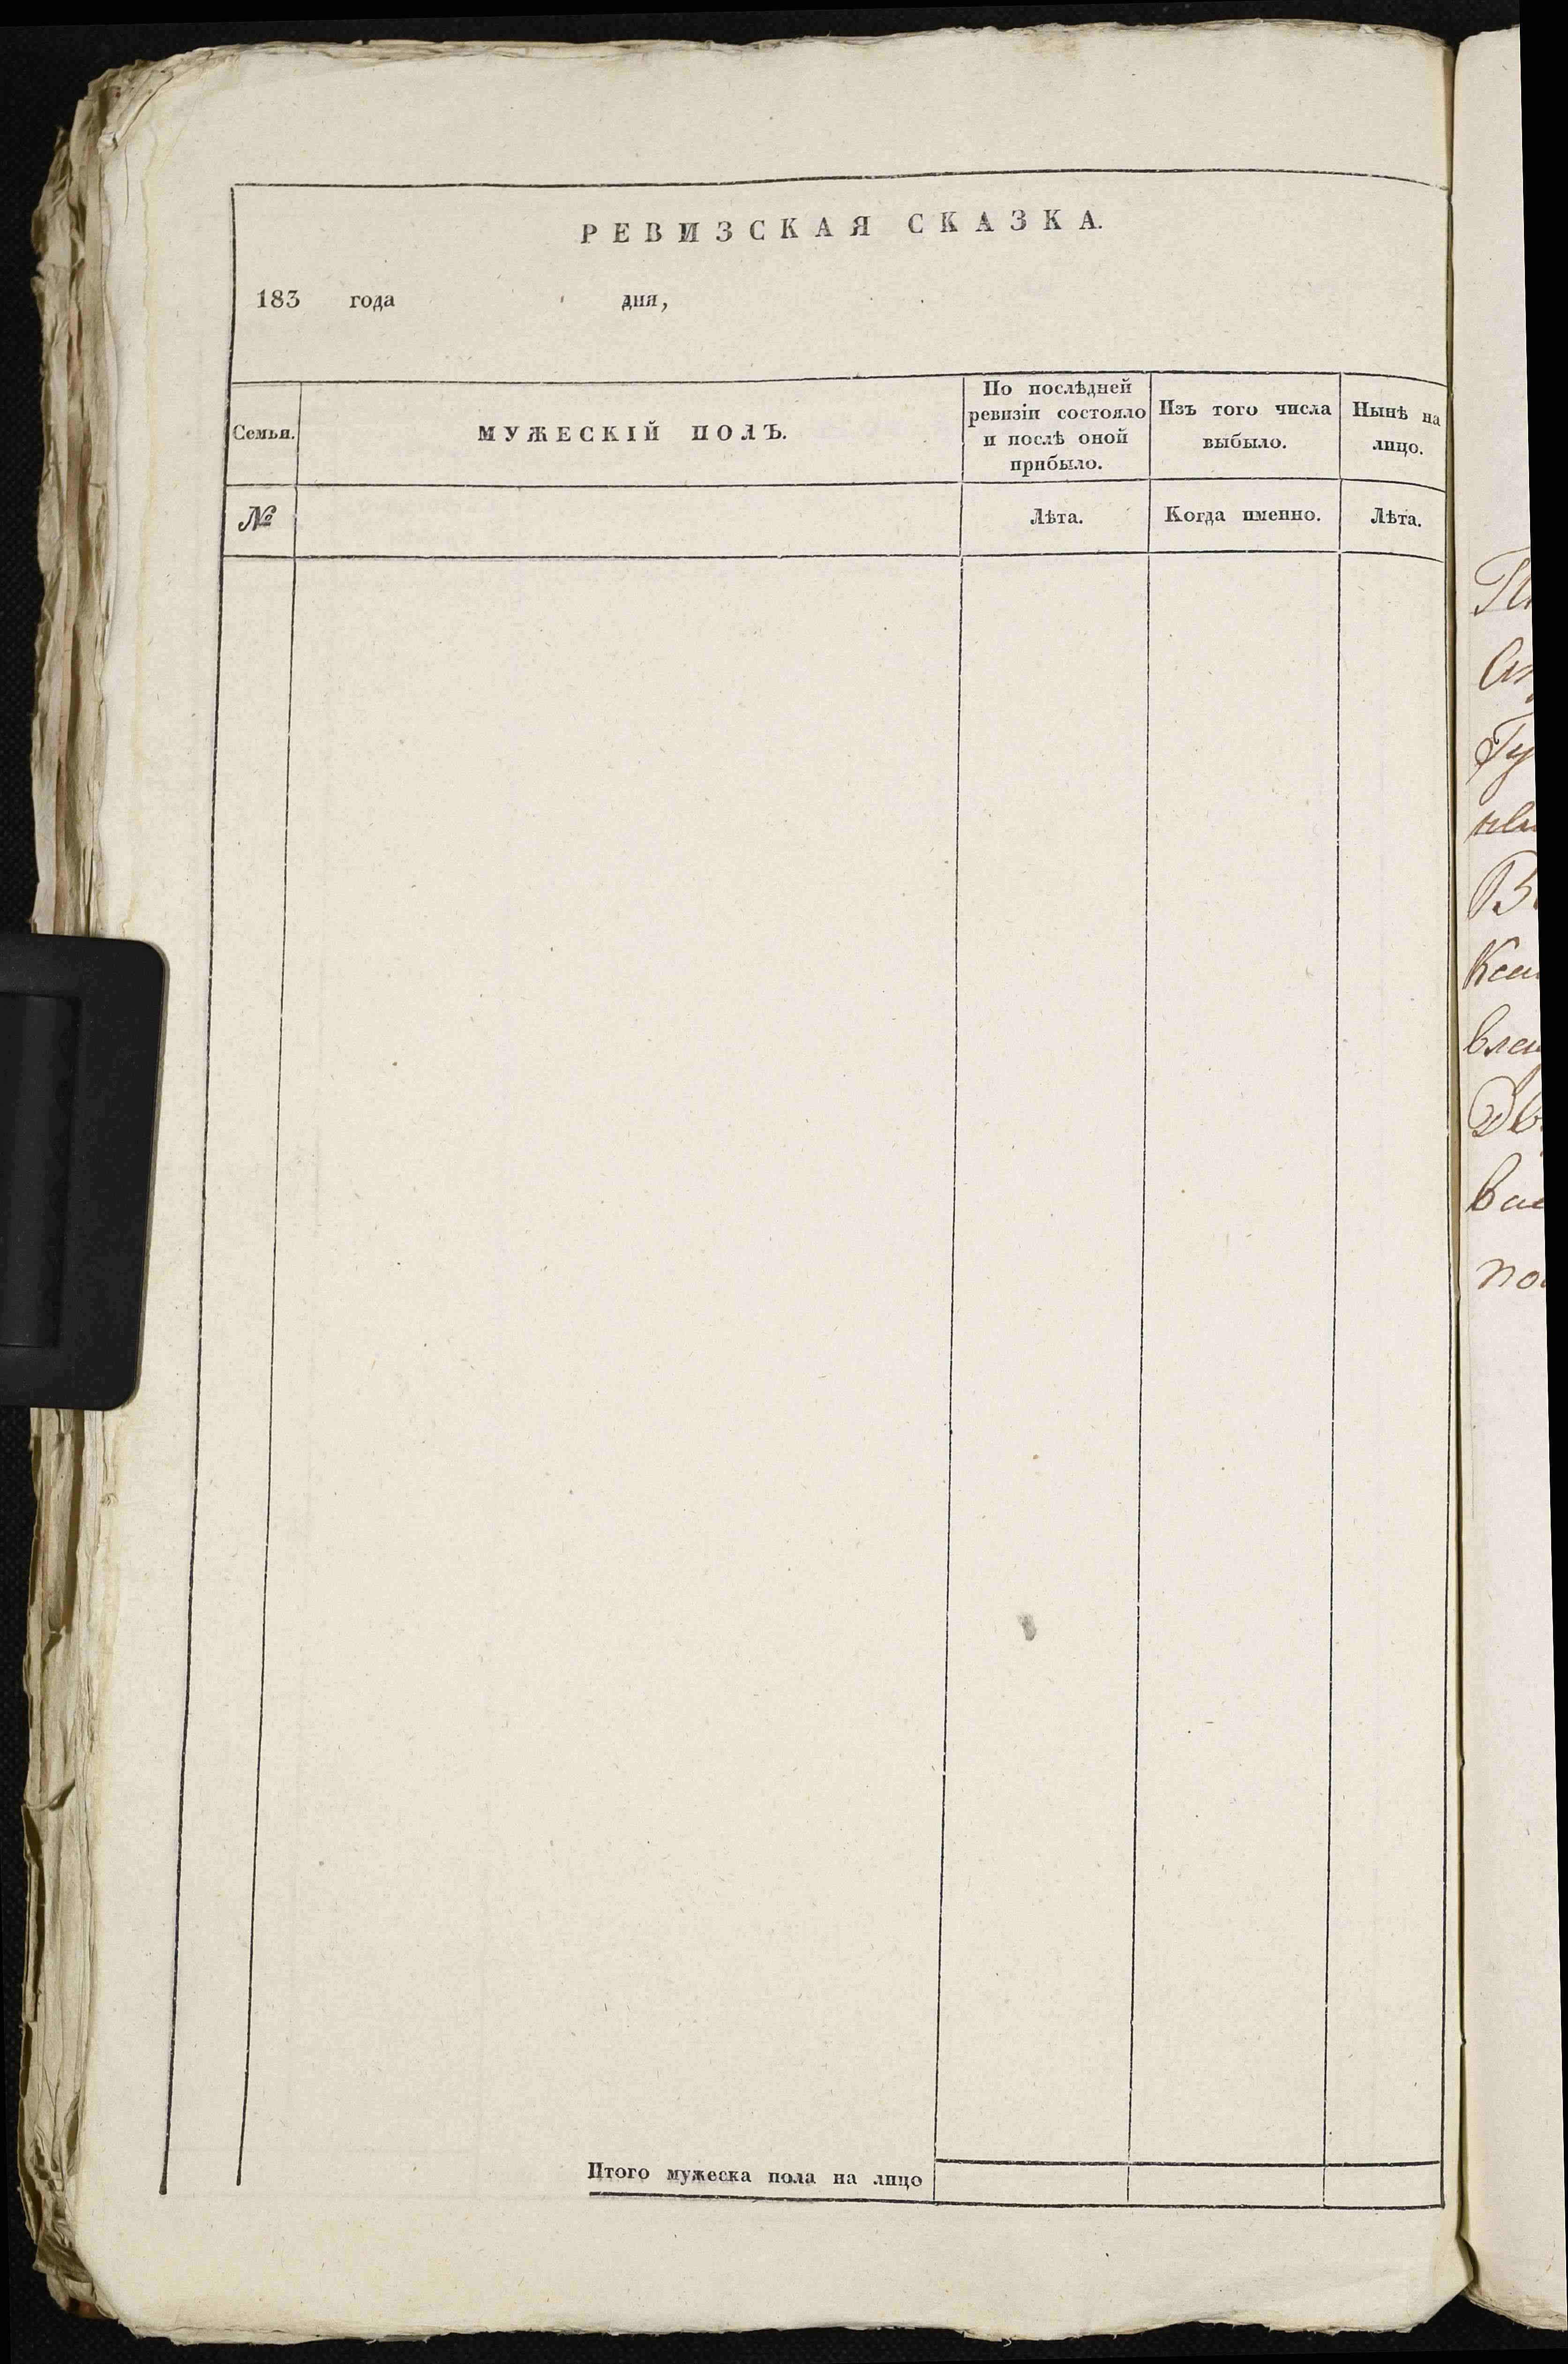 РЕВИЗСКАЯ СКАЗКА.
183 года дня,
Семьи.
МУЖЕСКІЙ ПОЛЪ.
По послѣдней
ревизіи состояло
и послѣ оной
прибыло.
Изъ того числа
выбыло.
Нынѣ на
лицо.
№
Лѣта.
Когда именно.
Лѣта.
Итого мужеска пола на лицо